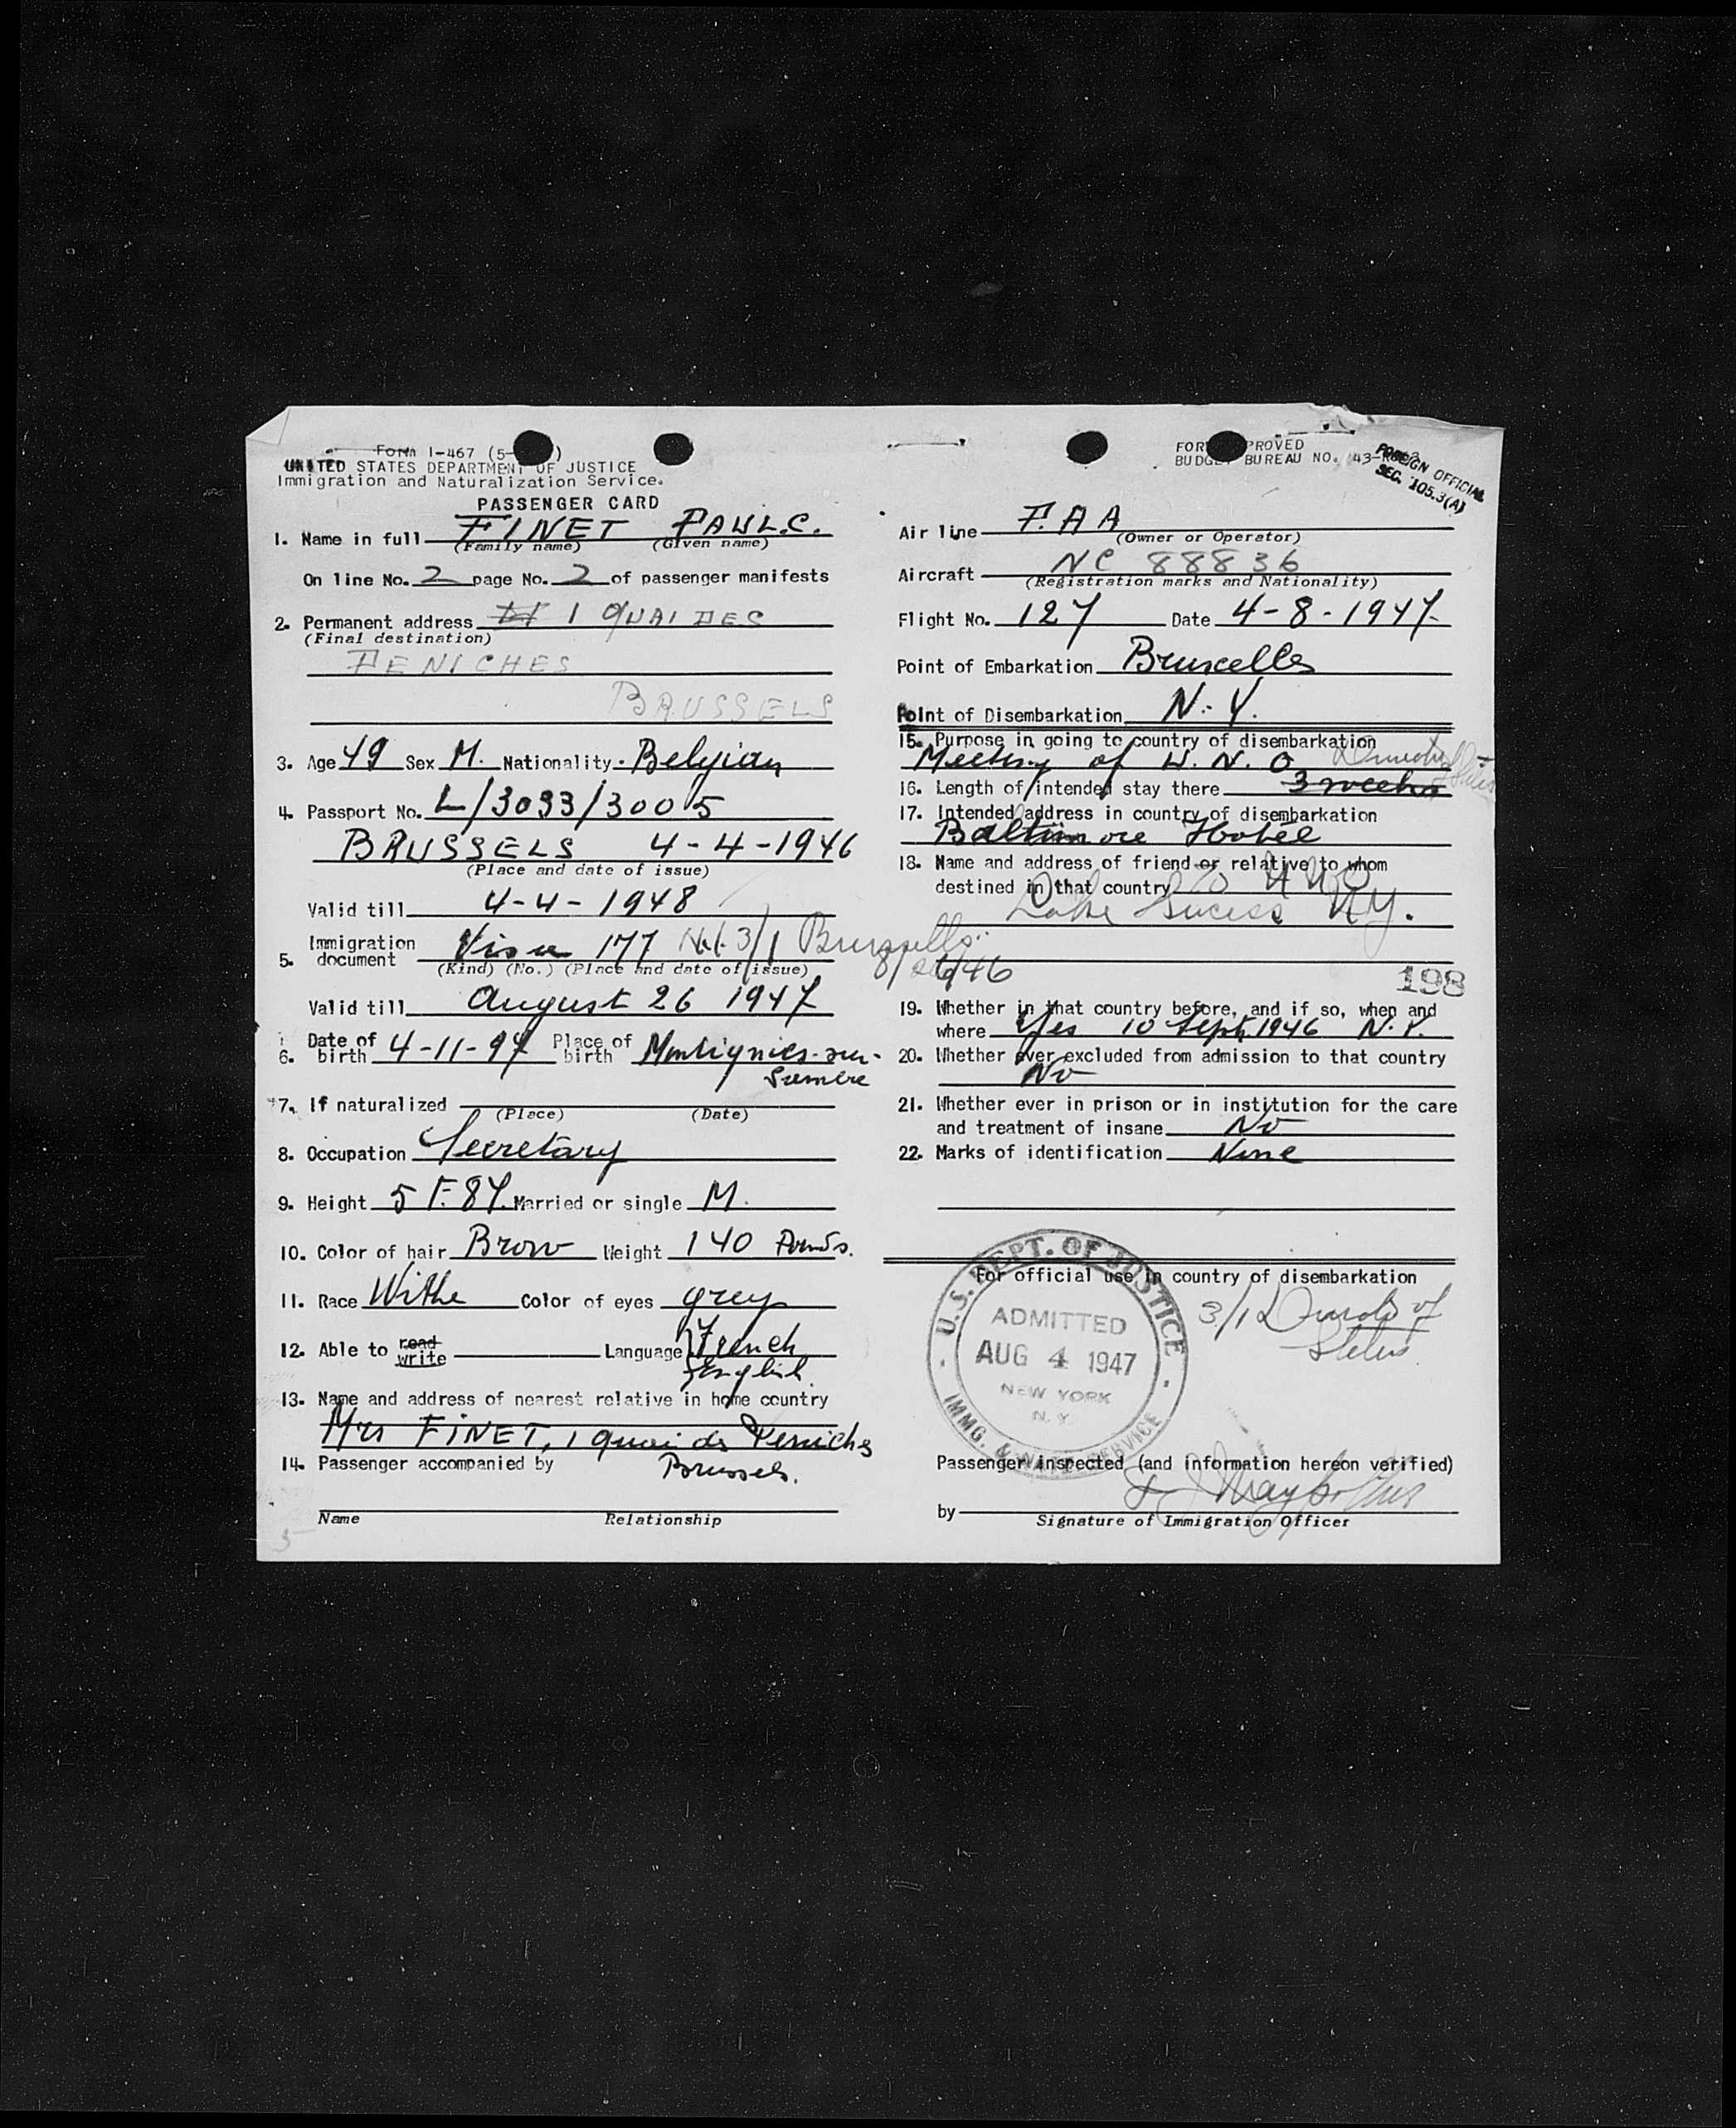 Form I-467 (5-    )
UNITED STATES DEPARTMENT OF JUSTICE
Immigration and Naturalization Service.
PASSENGER CARD
1. Name in full FINET PAUL.C.
(Family name) (Given name)
On line No. 2 page No. 2 of passenger manifests
2. Permanent address 1 QUAI DES
(Final destination)
PENICHES
BRUSSELS
3. Age 49 Sex M. Nationality. Belgian
4. Passport No. L/3093/3005
BRUSSELS 4-4-1946
(Place and date of issue)
Valid till 4-4-1948
5. Immigration document Visa 177 3/1 Brussells
(Kind) (No.) (Place and date of issue)
Valid till August 26 1947
6. Date of birth 4-11-97 Place of birth Montignies-sur-
Sambre
7. If naturalized
(Place) (Date)
8. Occupation Secretary
9. Height 5 F. 8 Married or single M.
10. Color of hair Brow Weight 140 Pounds.
11. Race Withe Color of eyes grey
12. Able to read write Language French
English.
13. Name and address of nearest relative in home country
Mrs FINET, 1 quai des Peniches
14. Passenger accompanied by Brussels.
Name Relationship
FOR    PROVED
BUDGET BUREAU NO. 43-
FOREIGN OFFICIAL
SEC. 105.3(A)
Air line P.A A
(Owner or Operator)
Aircraft NC 88836
(Registration marks and Nationality)
Flight No. 127 Date 4-8-1947-
Point of Embarkation Bruxelles
Point of Disembarkation N.Y.
15. Purpose in going to country of disembarkation
Meeting of U.N.O
16. Length of intended stay there 3 weeks
17. Intended address in country of disembarkation
Baltimore Hotel
18. Name and address of friend or relative to whom
destined in that country c/o UNO
Lake Sucess NY.
198
19. Whether in that country before, and if so, when and
where Yes 10 Sept. 1946 N.Y.
20. Whether ever excluded from admission to that country
No
21. Whether ever in prison or in institution for the care
and treatment of insane No
22. Marks of identification None
For official use in country of disembarkation
3/1 D of
Status
U.S. DEPT. OF JUSTICE
ADMITTED
AUG 4 1947
NEW YORK
N.Y.
IMMG. & NATZ. SERVICE
Passenger inspected (and information hereon verified)
by
Signature of Immigration Officer